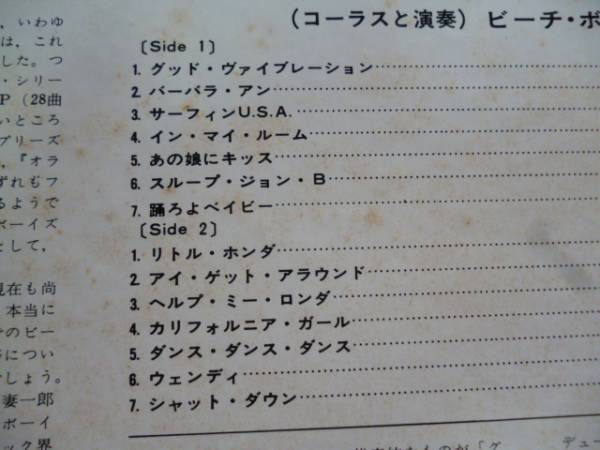 (コーラスと演奏) ビーチ・ボ
〔Side 1〕
1. グッド・ヴァイブレーション
2. バーバラ・アン
3. サーフィンU.S.A.
4. イン・マイ・ルーム
5. あの娘にキッス
6. スループ・ジョン・B
7. 踊ろよベイビー
〔Side 2〕
1. リトル・ホンダ
2. アイ・ゲット・アラウンド
3. ヘルプ・ミー・ロンダ
4. カリフォルニア・ガール
5. ダンス・ダンス・ダンス
6. ウェンディ
7. シャット・ダウン
いわゆ
は, これ
した。つ
・シリー
P (28曲
いところ
ブリーズ
, 『オラ
ずれもフ
るようで
ボーイズ
として,
現在も尚
本当に
のビー
につい
しょう。
妻一郎
ボーイ
ック界
デュー